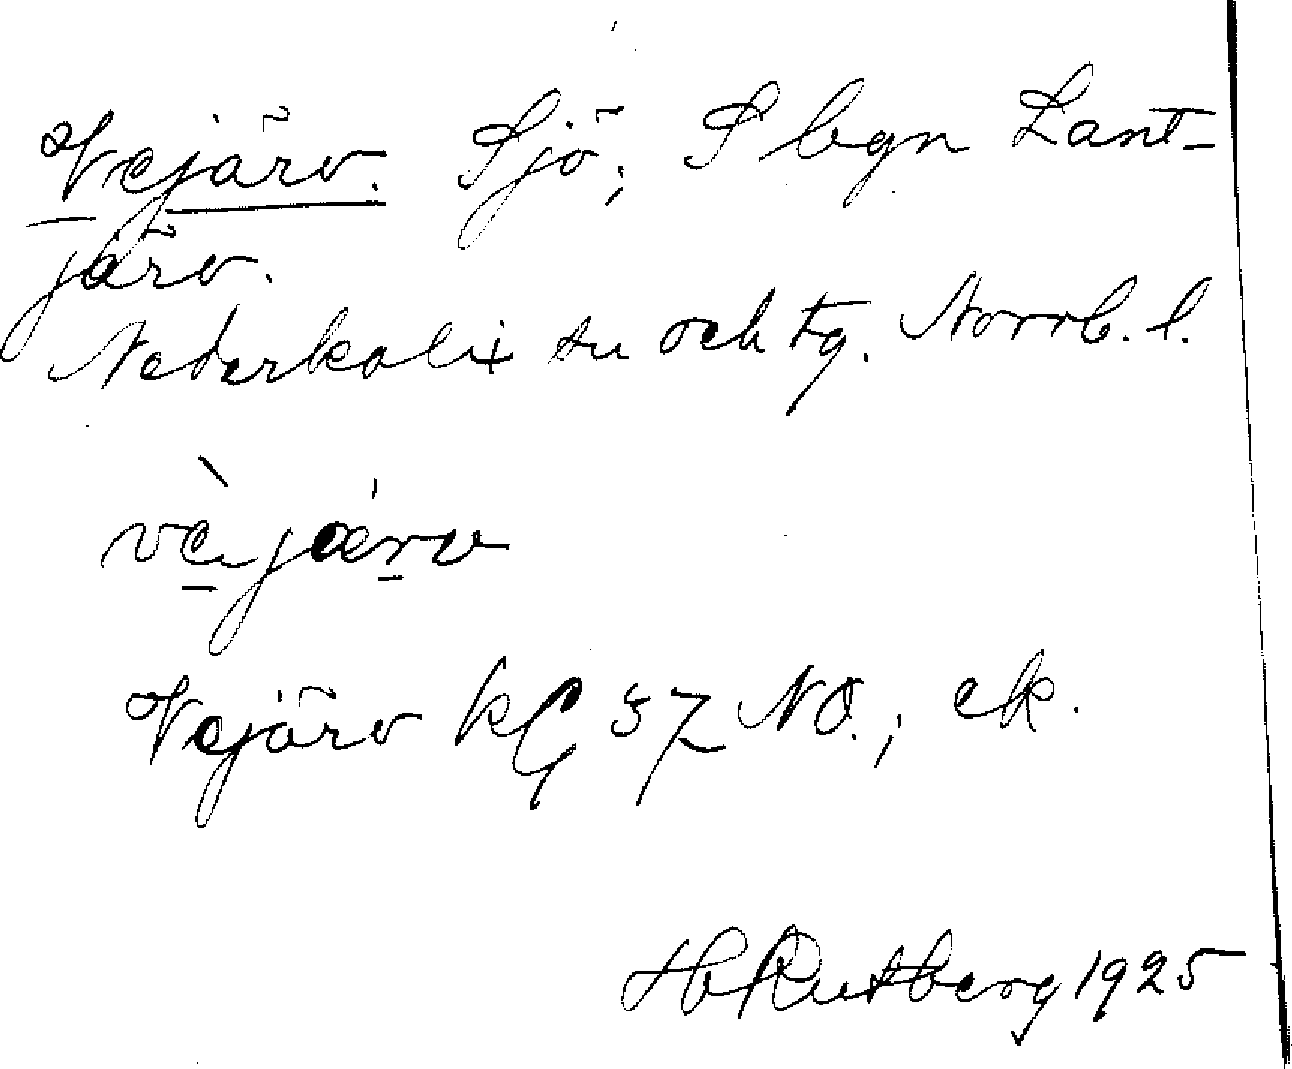 Vejärv. Sjö; S byn Lant-
järv.
Nederkalix sn och tg. Norrb. l.
vèjärv
Vejärv kG 37 NO., ek.
H Rutberg 1925